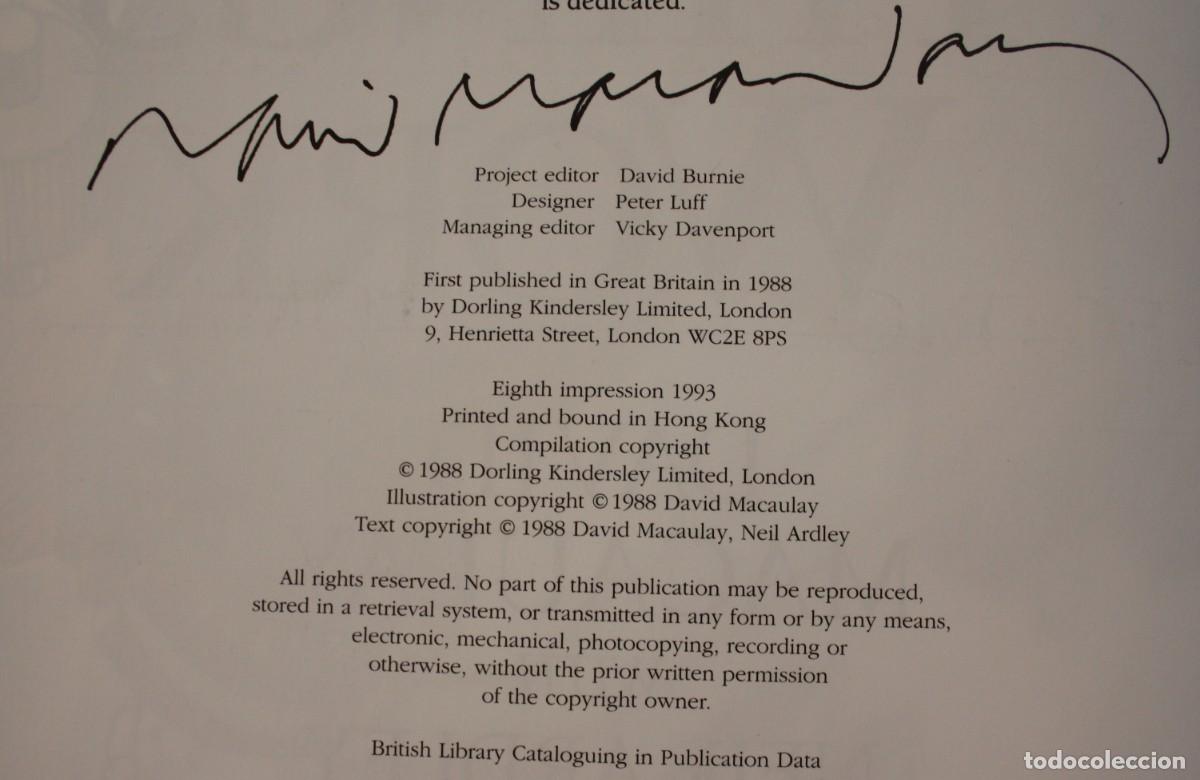 is dedicated.
David Macaulay
Project editor David Burnie
Designer Peter Luff
Managing editor Vicky Davenport
First published in Great Britain in 1988
by Dorling Kindersley Limited, London
9, Henrietta Street, London WC2E 8PS
Eighth impression 1993
Printed and bound in Hong Kong
Compilation copyright
© 1988 Dorling Kindersley Limited, London
Illustration copyright © 1988 David Macaulay
Text copyright © 1988 David Macaulay, Neil Ardley
All rights reserved. No part of this publication may be reproduced,
stored in a retrieval system, or transmitted in any form or by any means,
electronic, mechanical, photocopying, recording or
otherwise, without the prior written permission
of the copyright owner.
British Library Cataloguing in Publication Data
todocoleccion